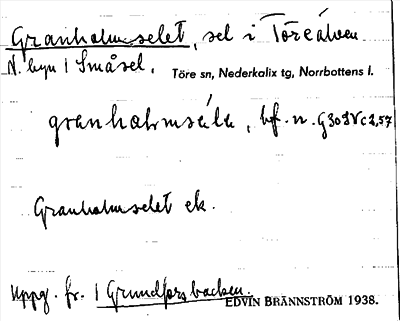 Granholmselet, sel i Töreälven
N. byn 1 Småsel.
Töre sn, Nederkalix tg, Norrbottens l.
granholmsela, bf. n. G30SVc2,57
Granholmselet ek.
Uppg. fr. 1 Grundforsbacken.
EDVIN BRÄNNSTRÖM 1938.